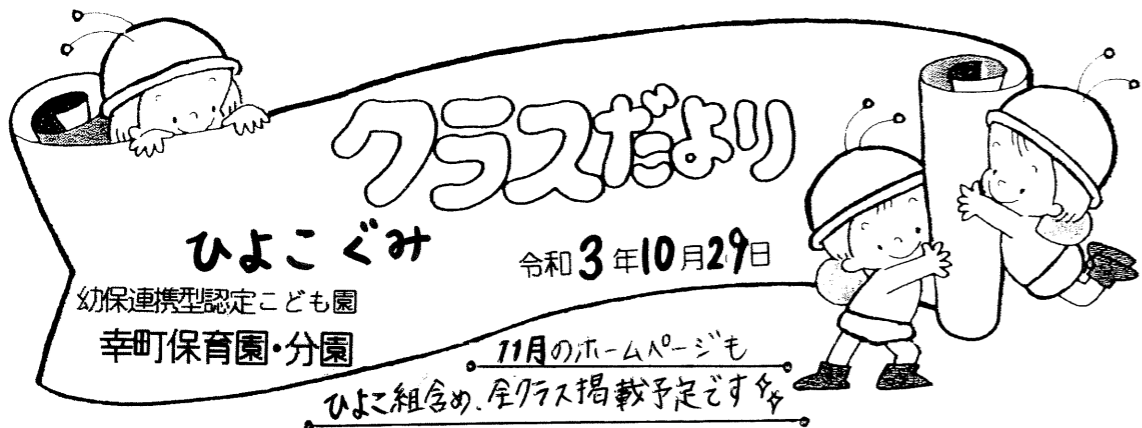 クラスだより
ひよこぐみ
令和3年10月29日
幼保連携型認定こども園
幸町保育園・分園
11月のホームページも
ひよこ組含め、全クラス掲載予定です